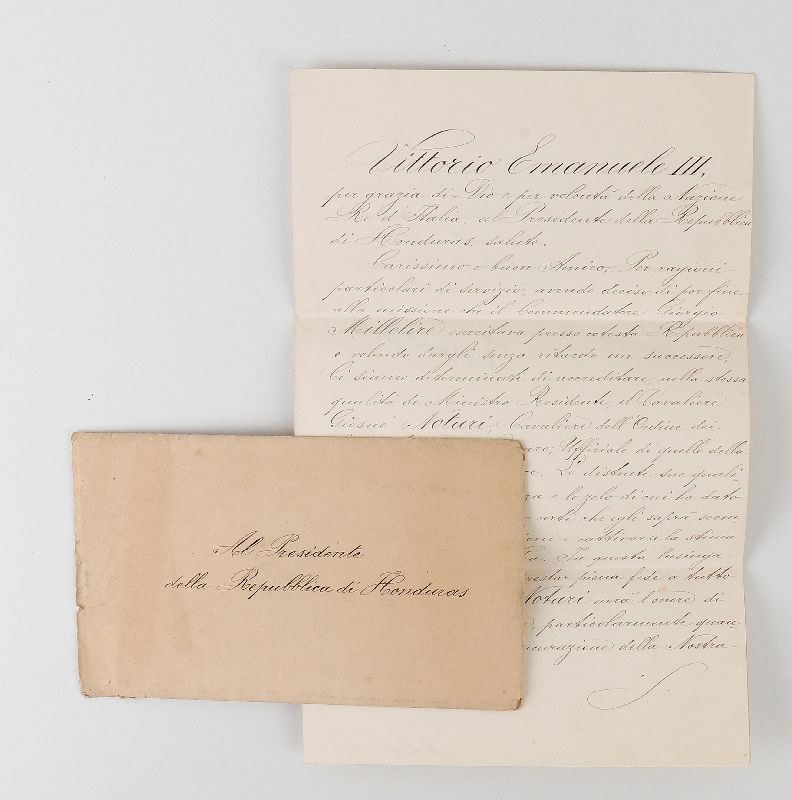 Vittorio Emanuele III,
per grazia di Dio e per volontà della Nazione
Re d'Italia, al Presidente della Repubblica
di Honduras, salute.
Carissimo e buon Amico, Per ragioni
particolari di servizio, avendo deciso di por fine
alla missione che il Commendatore Giorgio
Millelire esercitava presso cotesta Repubblica
e volendo dargli senza ritardo un successore,
Ci siamo determinati di accreditare, nella stessa
qualità di Ministro Residente, il Cavaliere
Giosuè Notari, Cavaliere dell'Ordine dei
Uffiziale di quello della
Le distinte sue quali-
e lo zelo di cui ha dato
certi che egli saprà
e cattivarsi la stima
In questa lusinga-
piena fede a tutto
Notari avrà l'onore di
particolarmente quan-
della Nostra
Al Presidente
della Repubblica di Honduras